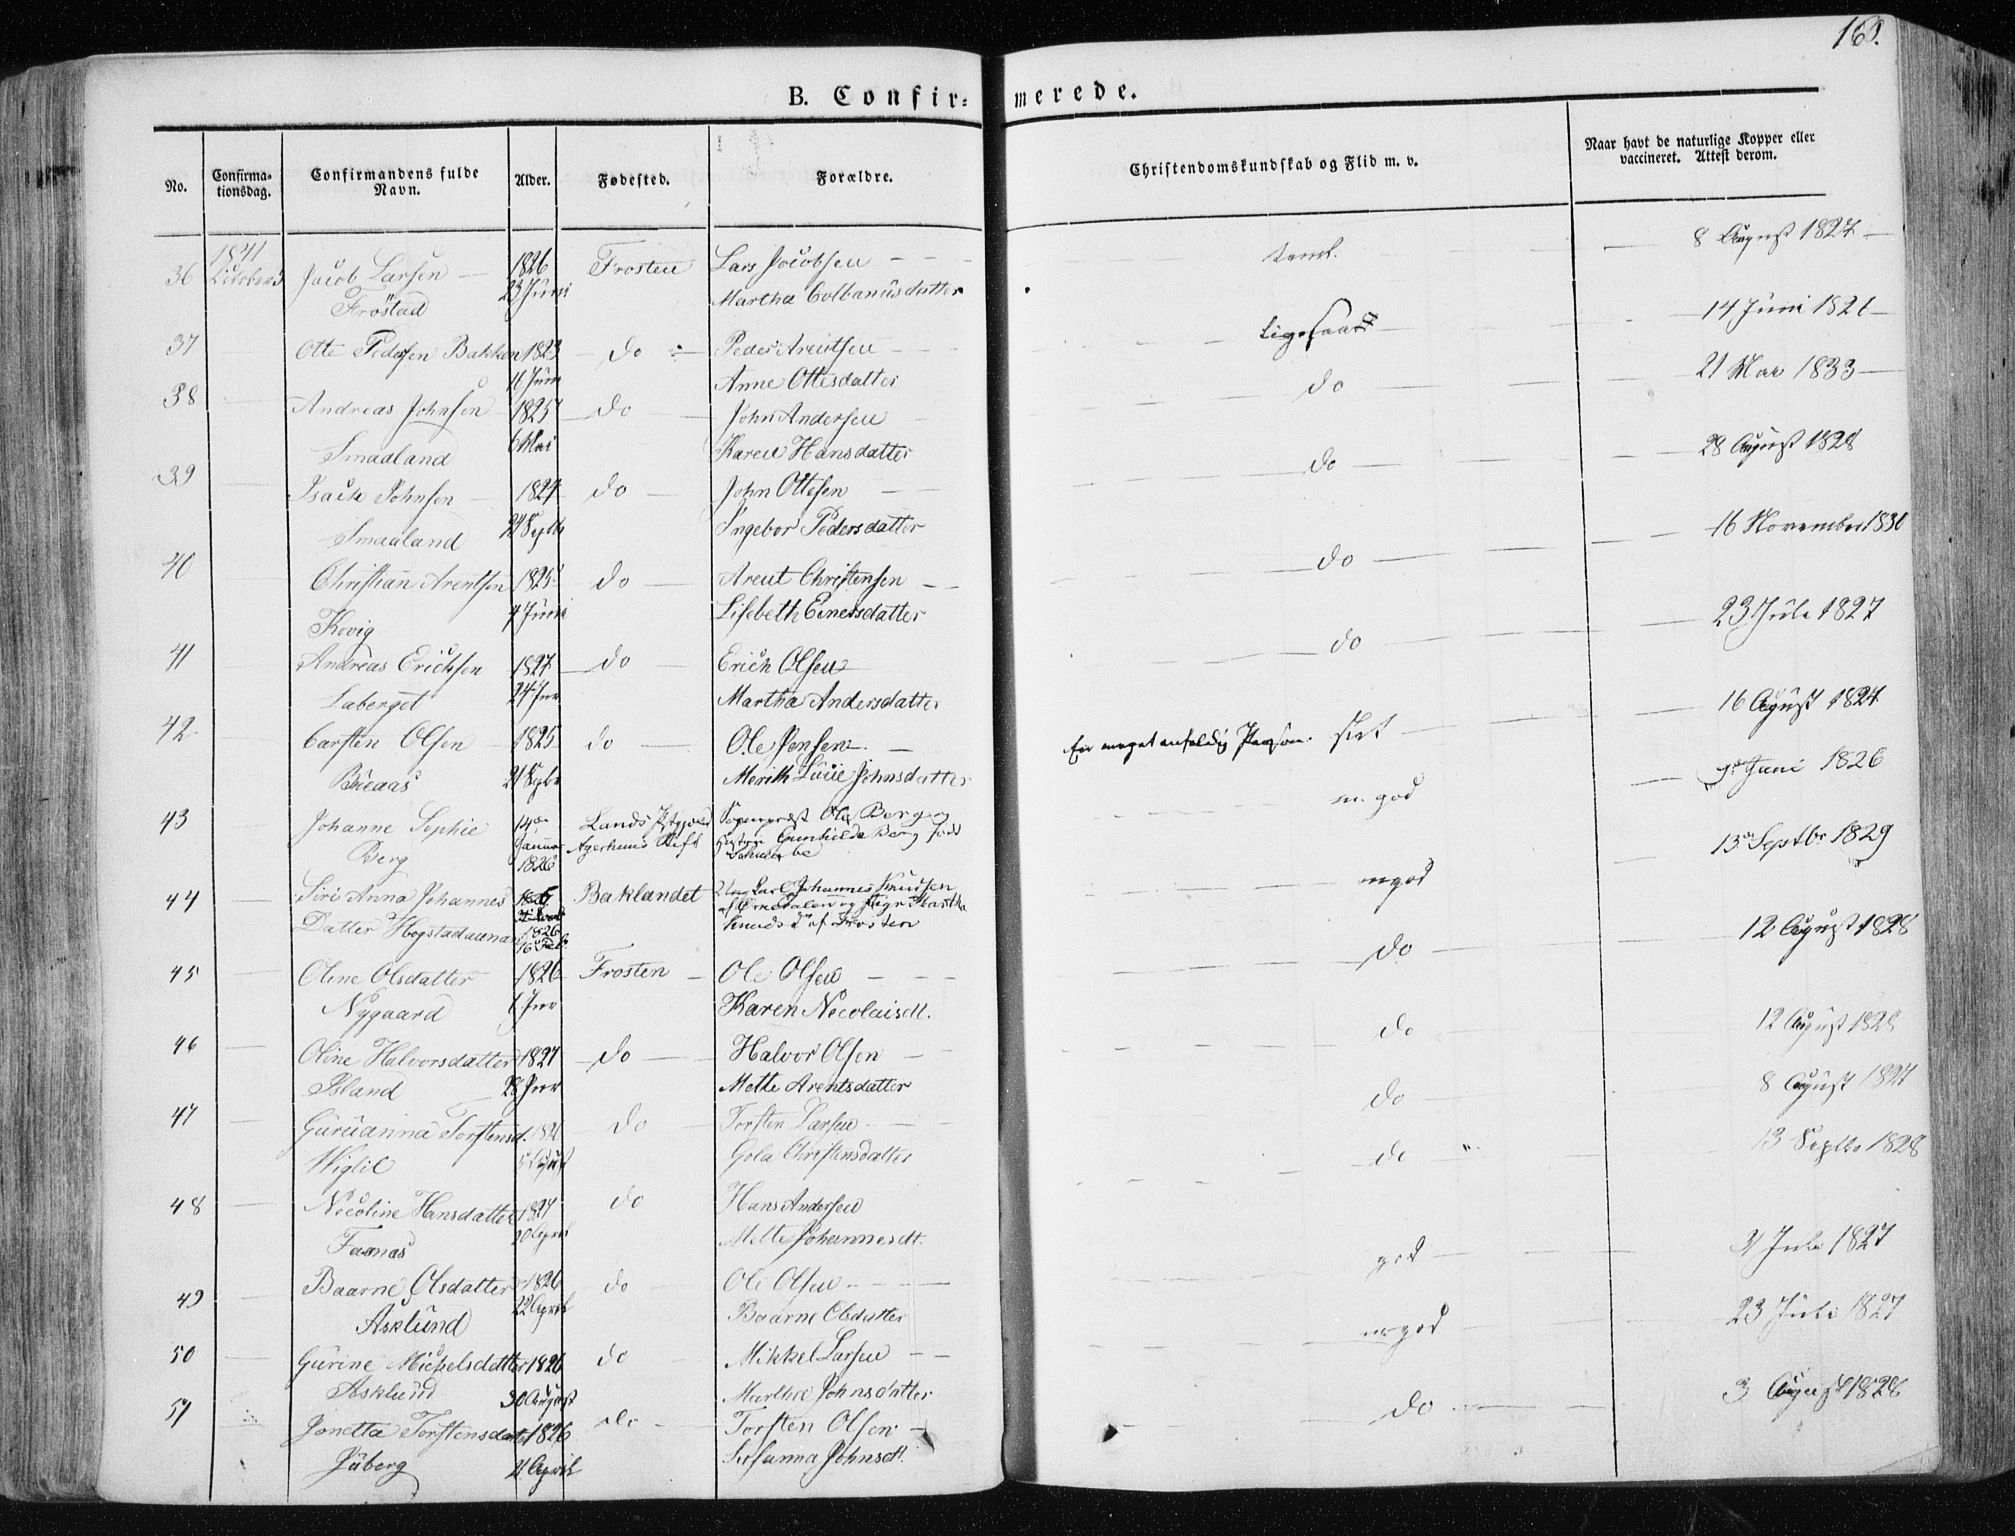 160.
B. Confir= merede.
No. Confirma-tionsdag. Confirmandens fulde Navn. Alder. Fødested. Forældre. Christendomskundskab og Flid m. v. Naar havt de naturlige Kopper eller vaccineret. Attest derom.
1841
36 Octobers Jacob Larsen 1826 Frosten Lars Jacobsen 8 August 1827
Frøstad 23 Juni Martha Colbanusdatter
37 Otte Pedersen Bakken 1823 do Peder Arentsen Ligesaa 14 Juni 1826
11 Juni Anne Ottesdatter
38 Andreas Johnsen 1825 do John Andersen do 21 Mai 1833
Smaaland 6 Mai Karen Hansdatter
39 Isack Johnsen 1827 do John Ottesen do 28 August 1828
Smaaland 24 Septb Ingebor Pedersdatter
40 Christian Arentsen 1825 do Arent Christensen do 16 November 1830
Kovig 4 Juni Lisebeth Einersdatter
41 Andreas Ericksen 1827 do Erich Olsen do 23 Juli 1827
Laberget 24 Jnr Martha Andersdatter
42 Carsten Olsen 1825 do Ole Jensen slet 16 August 1827
21 Septbr Merith Johnsdatter
43 Johanne Sophie 14de Lands Sogneprest Ole Berg og m. god 9de Juni 1826
Berg Januar Agerhuus Stift Gunhilde Berg født
1826
44 Siri Anna Johannes Baklandet Ung Karl Johannes Knudsen mgod 13de Septbr 1829
Datter 1826 og Pige Martha
16 Feb. Knudsd af Frosten
45 Oline Olsdatter 1826 Frosten Ole Olsen do 12 August 1828
Nygaard 1 Jnr Karen Necolaisdt.
46 Oline Halvorsdatter 1827 do Halvor Olsen do 12 August 1828
Island 28 Jnr Mette Arentsdatter
47 Guruanna Torstensd. do Torsten Larsen do 8 August 1827
Wigtil August Gola Christensdatter
48 Necoline Hansdatter 1827 do Hans Andersen do 13 Septbr 1828
Fanæs April Mette Johannesdt.
49 Baarne Olsdatter 1826 do Ole Olsen god Juli 1827
Asklund 22 April Baarne Olsdatter
50 Gurine Mickelsdatter 1826 do Mikkel Larsen mgod 23 Juli 1827
Asklund 30 August Martha Johnsdatter
51 Jonetta Torstensdatter 1826 do Torsten Olsen do 3 August 1828
Juberg 21 April Susanna Johnsdt.